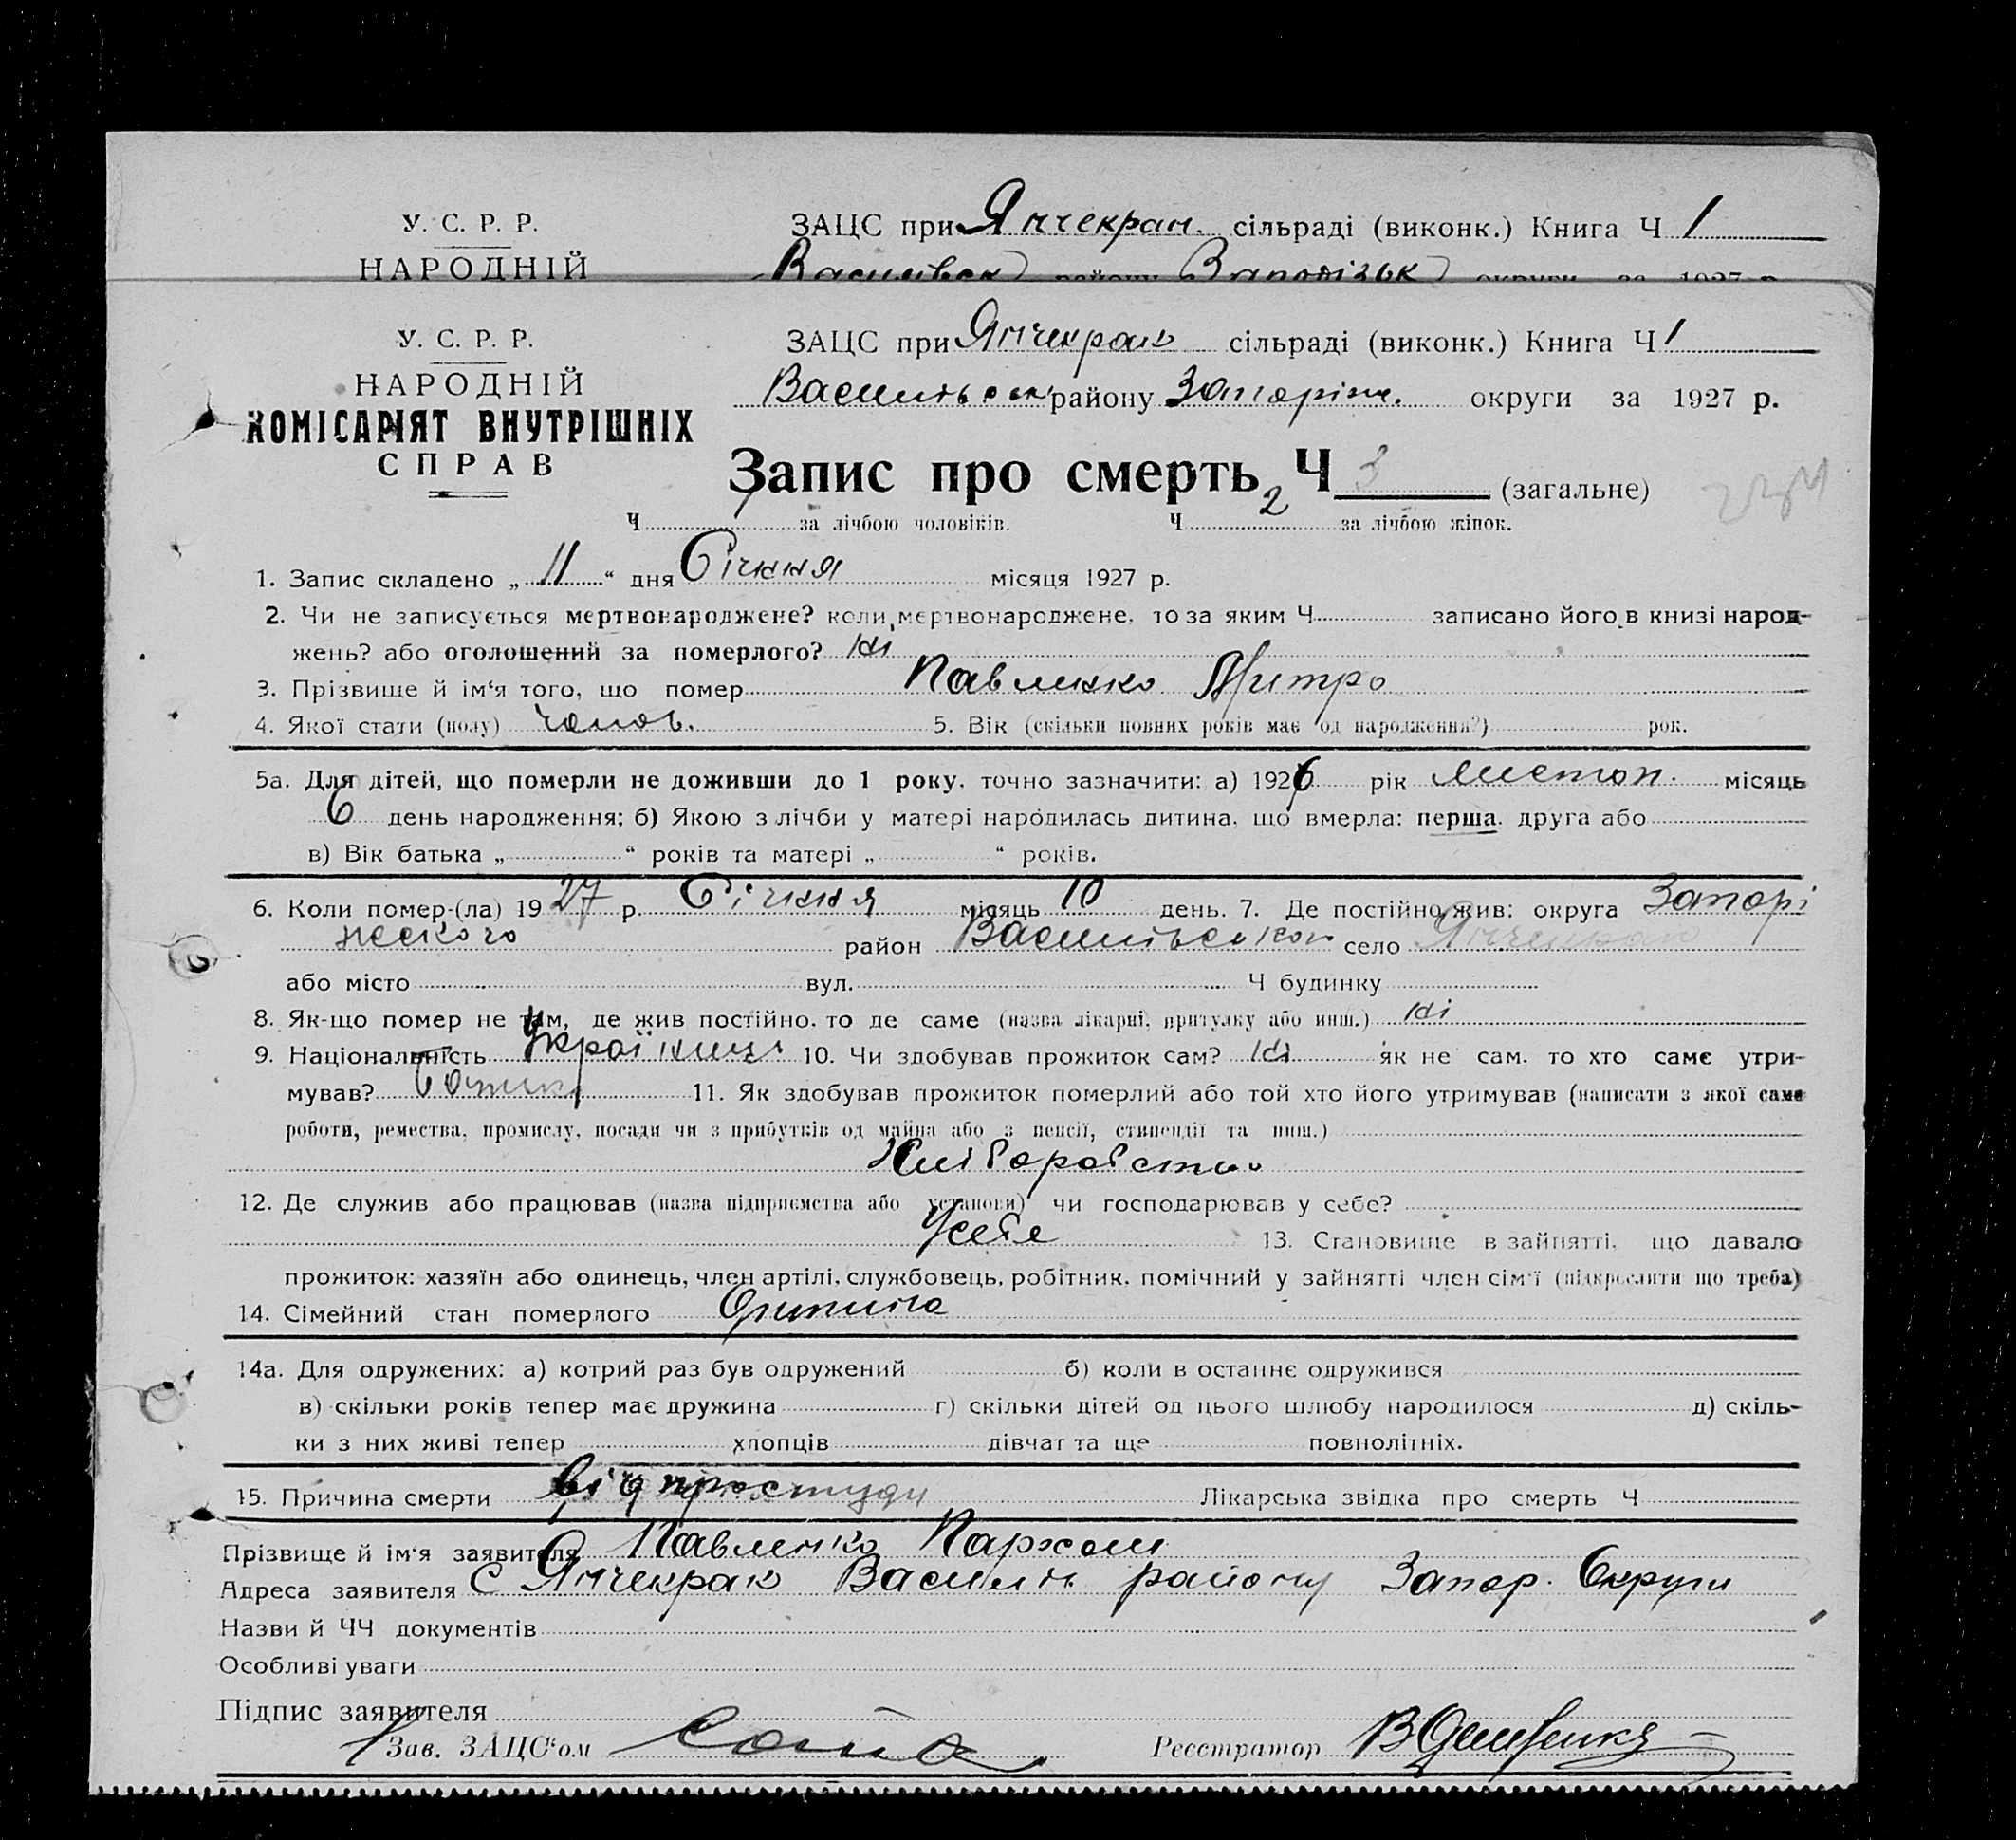 У. С. Р. Р.
НАРОДНІЙ
ЗАЦС при Янчекрак. сільраді (виконк.) Книга Ч 1
Василівськ району Запоріжськ округи за 1927 р.
У. С. Р. Р.
НАРОДНІЙ
КОМІСАРІЯТ ВНУТРІШНІХ
СПРАВ
ЗАЦС при Янчекрак сільраді (виконк.) Книга Ч 1
Василівськ району Запоріж. округи за 1927 р.
Запис про смерть Ч 3 (загальне)
Ч 1 за лічбою чоловіків. Ч 2 за лічбою жінок.
1. Запис складено „ 11 “ дня Січння місяця 1927 р.
2. Чи не записується мертвонароджене? коли мертвонароджене, то за яким Ч записано його в книзі народ-
жень? або оголошений за померлого? Ні
3. Прізвище й ім'я того, що помер Павленко Дмитро
4. Якої стати (полу) чолов. 5. Вік (скільки повних років має од народження?) рок.
5а. Для дітей, що померли не доживши до 1 року. точно зазначити: а) 1926 рік листоп. місяць
6 день народження; б) Якою з лічби у матері народилась дитина, що вмерла: перша. друга або
в) Вік батька „ “ років та матері „ “ років.
6. Коли помер-(ла) 1927 р. Січння місяць 10 день. 7. Де постійно жив: округа Запорі
жського район Василівськом село Янчекрак
або місто вул. Ч будинку
8. Як-що помер не там, де жив постійно. то де саме (назва лікарні, притулку або инш.) Ні
9. Національність Українець 10. Чи здобував прожиток сам? Ні як не сам. то хто саме утри-
мував? Батько 11. Як здобував прожиток померлий або той хто його утримував (написати з якої саме
роботи, ремества, промислу, посади чи з прибутків од майна або з пенсії, стипендії та инш.)
Хліборобство
12. Де служив або працював (назва підприємства або установи) чи господарював у себе?
Усебе 13. Становище в зайнятті, що давало
прожиток: хазяїн або одинець, член артілі, службовець, робітник, помічний у зайнятті член сім'ї (підкреслити що треба)
14. Сімейний стан померлого Дитина
14а. Для одружених: а) котрий раз був одружений б) коли в останнє одружився
в) скільки років тепер має дружина г) скільки дітей од цього шлюбу народилося д) скіль-
ки з них живі тепер хлопців дівчат та ще повнолітніх.
15. Причина смерти від простуди Лікарська звідка про смерть Ч
Прізвище й ім'я заявителя Павленко Пархом
Адреса заявителя С Янчекрак Василів району Запор. Округи
Назви й ЧЧ документів
Особливі уваги
Підпис заявителя
Зав. ЗАЦС'ом
Реєстратор